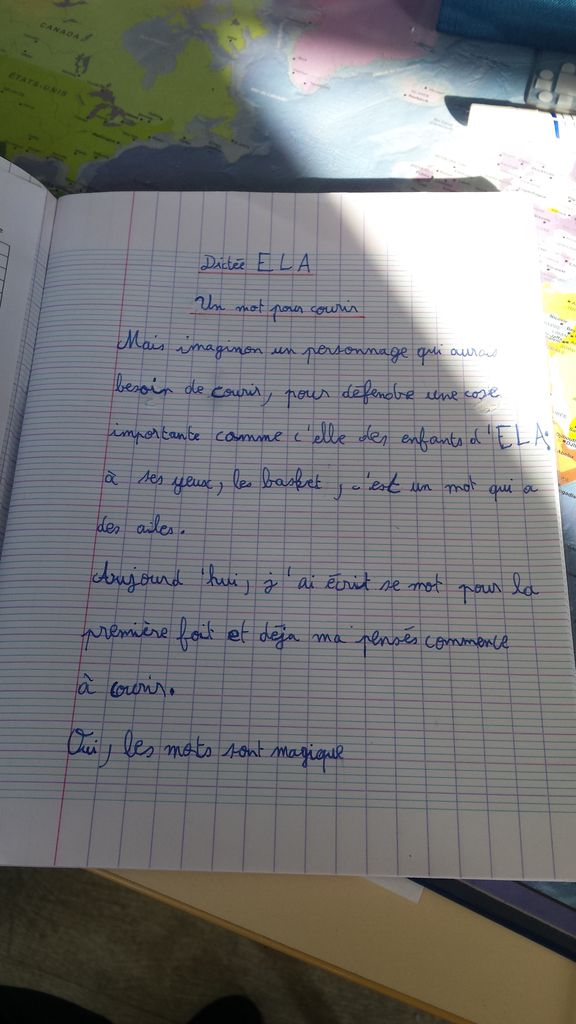 CANADA
ÉTATS-UNIS
Dictée ELA
Un mot pour courir
Mais imaginon un personnage qui aurais
besoin de courir, pour défendre une cose
importante comme c'elle des enfants d'ELA.
à ses yeux, les basket, c'est un mot qui a
des ailes.
Aujourd'hui, j'ai écrit se mot pour la
première foit et déja ma pensés commence
à courir.
Oui, les mots sont magique